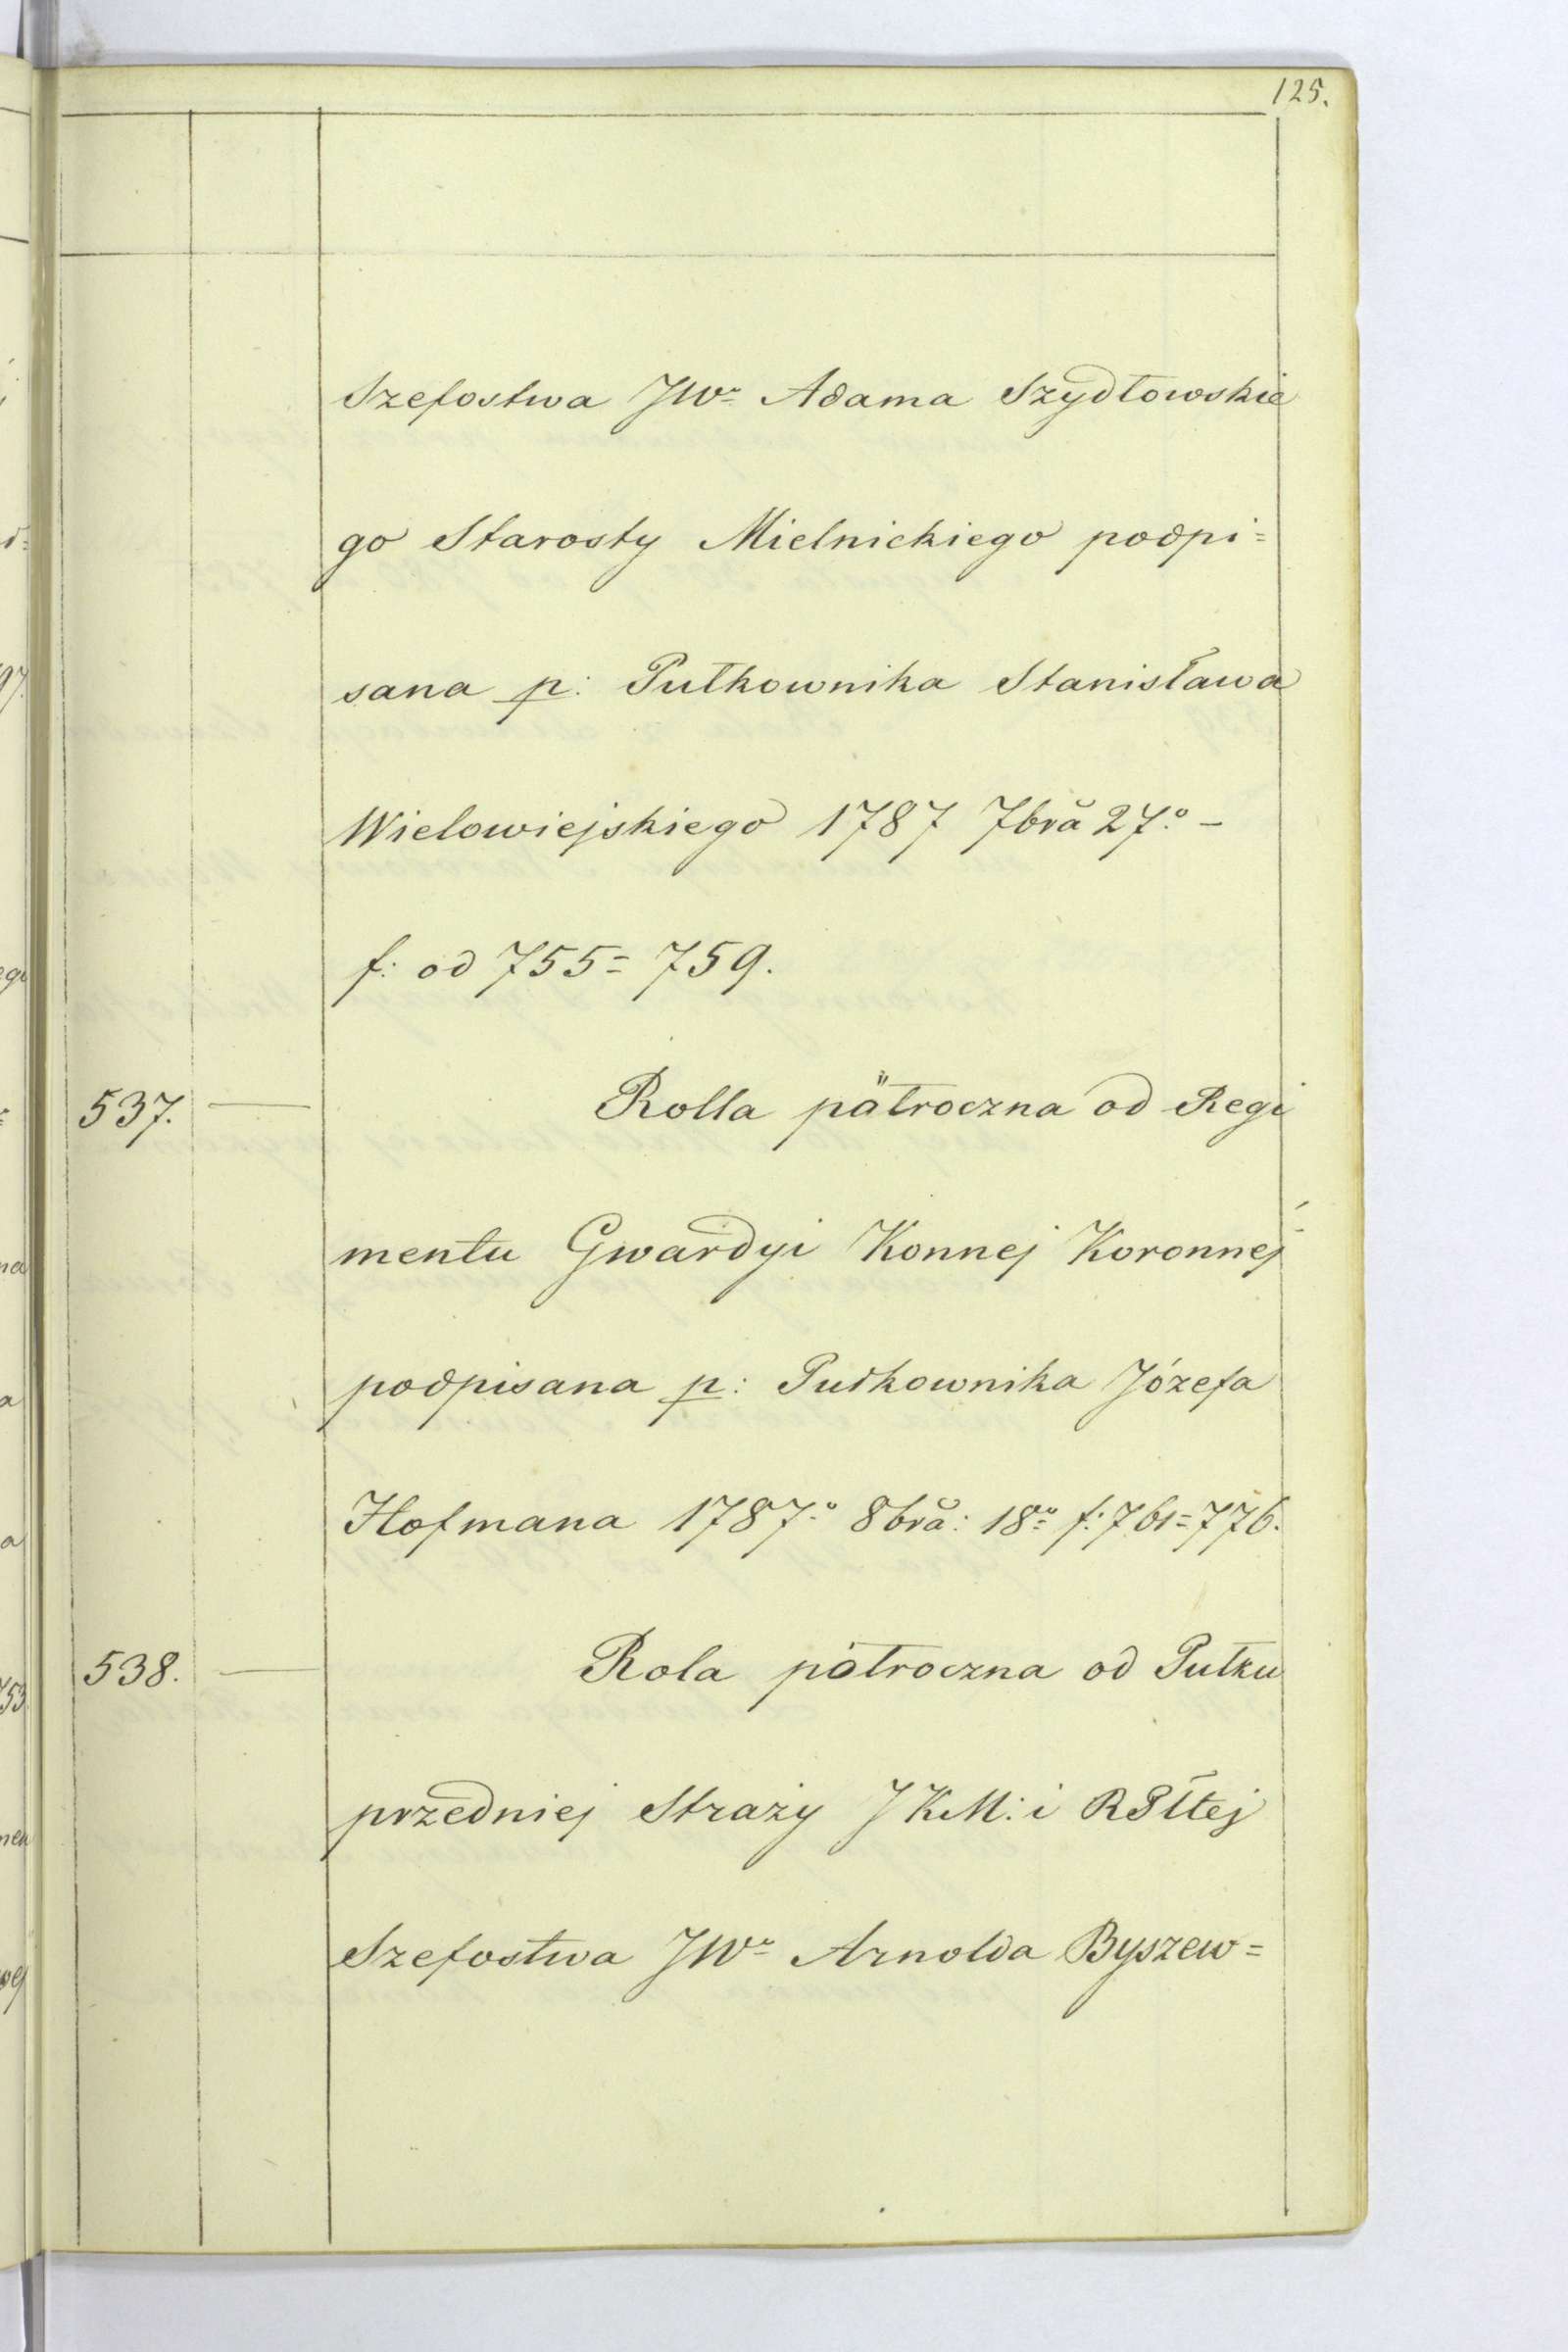 125.
Szefostwa JWo Adama Szydłowskie
go Starosty Mielnickiego podpi=
sana p: Pułkownika Stanisława
Wielowiejskiego 1787 7bra 27.o –
f: od 755= 759.
537. — Rolla półroczna od Regi
mentu Gwardyi Konnej Koronnej
podpisana p: Pułkownika Józefa
Hofmana 1787.o 8bra: 18o f: 761=776.
538. — Rola półroczna od Pułku
przedniej Straży JKM: i RPłtej
Szefostwa JWo Arnolda Byszew=